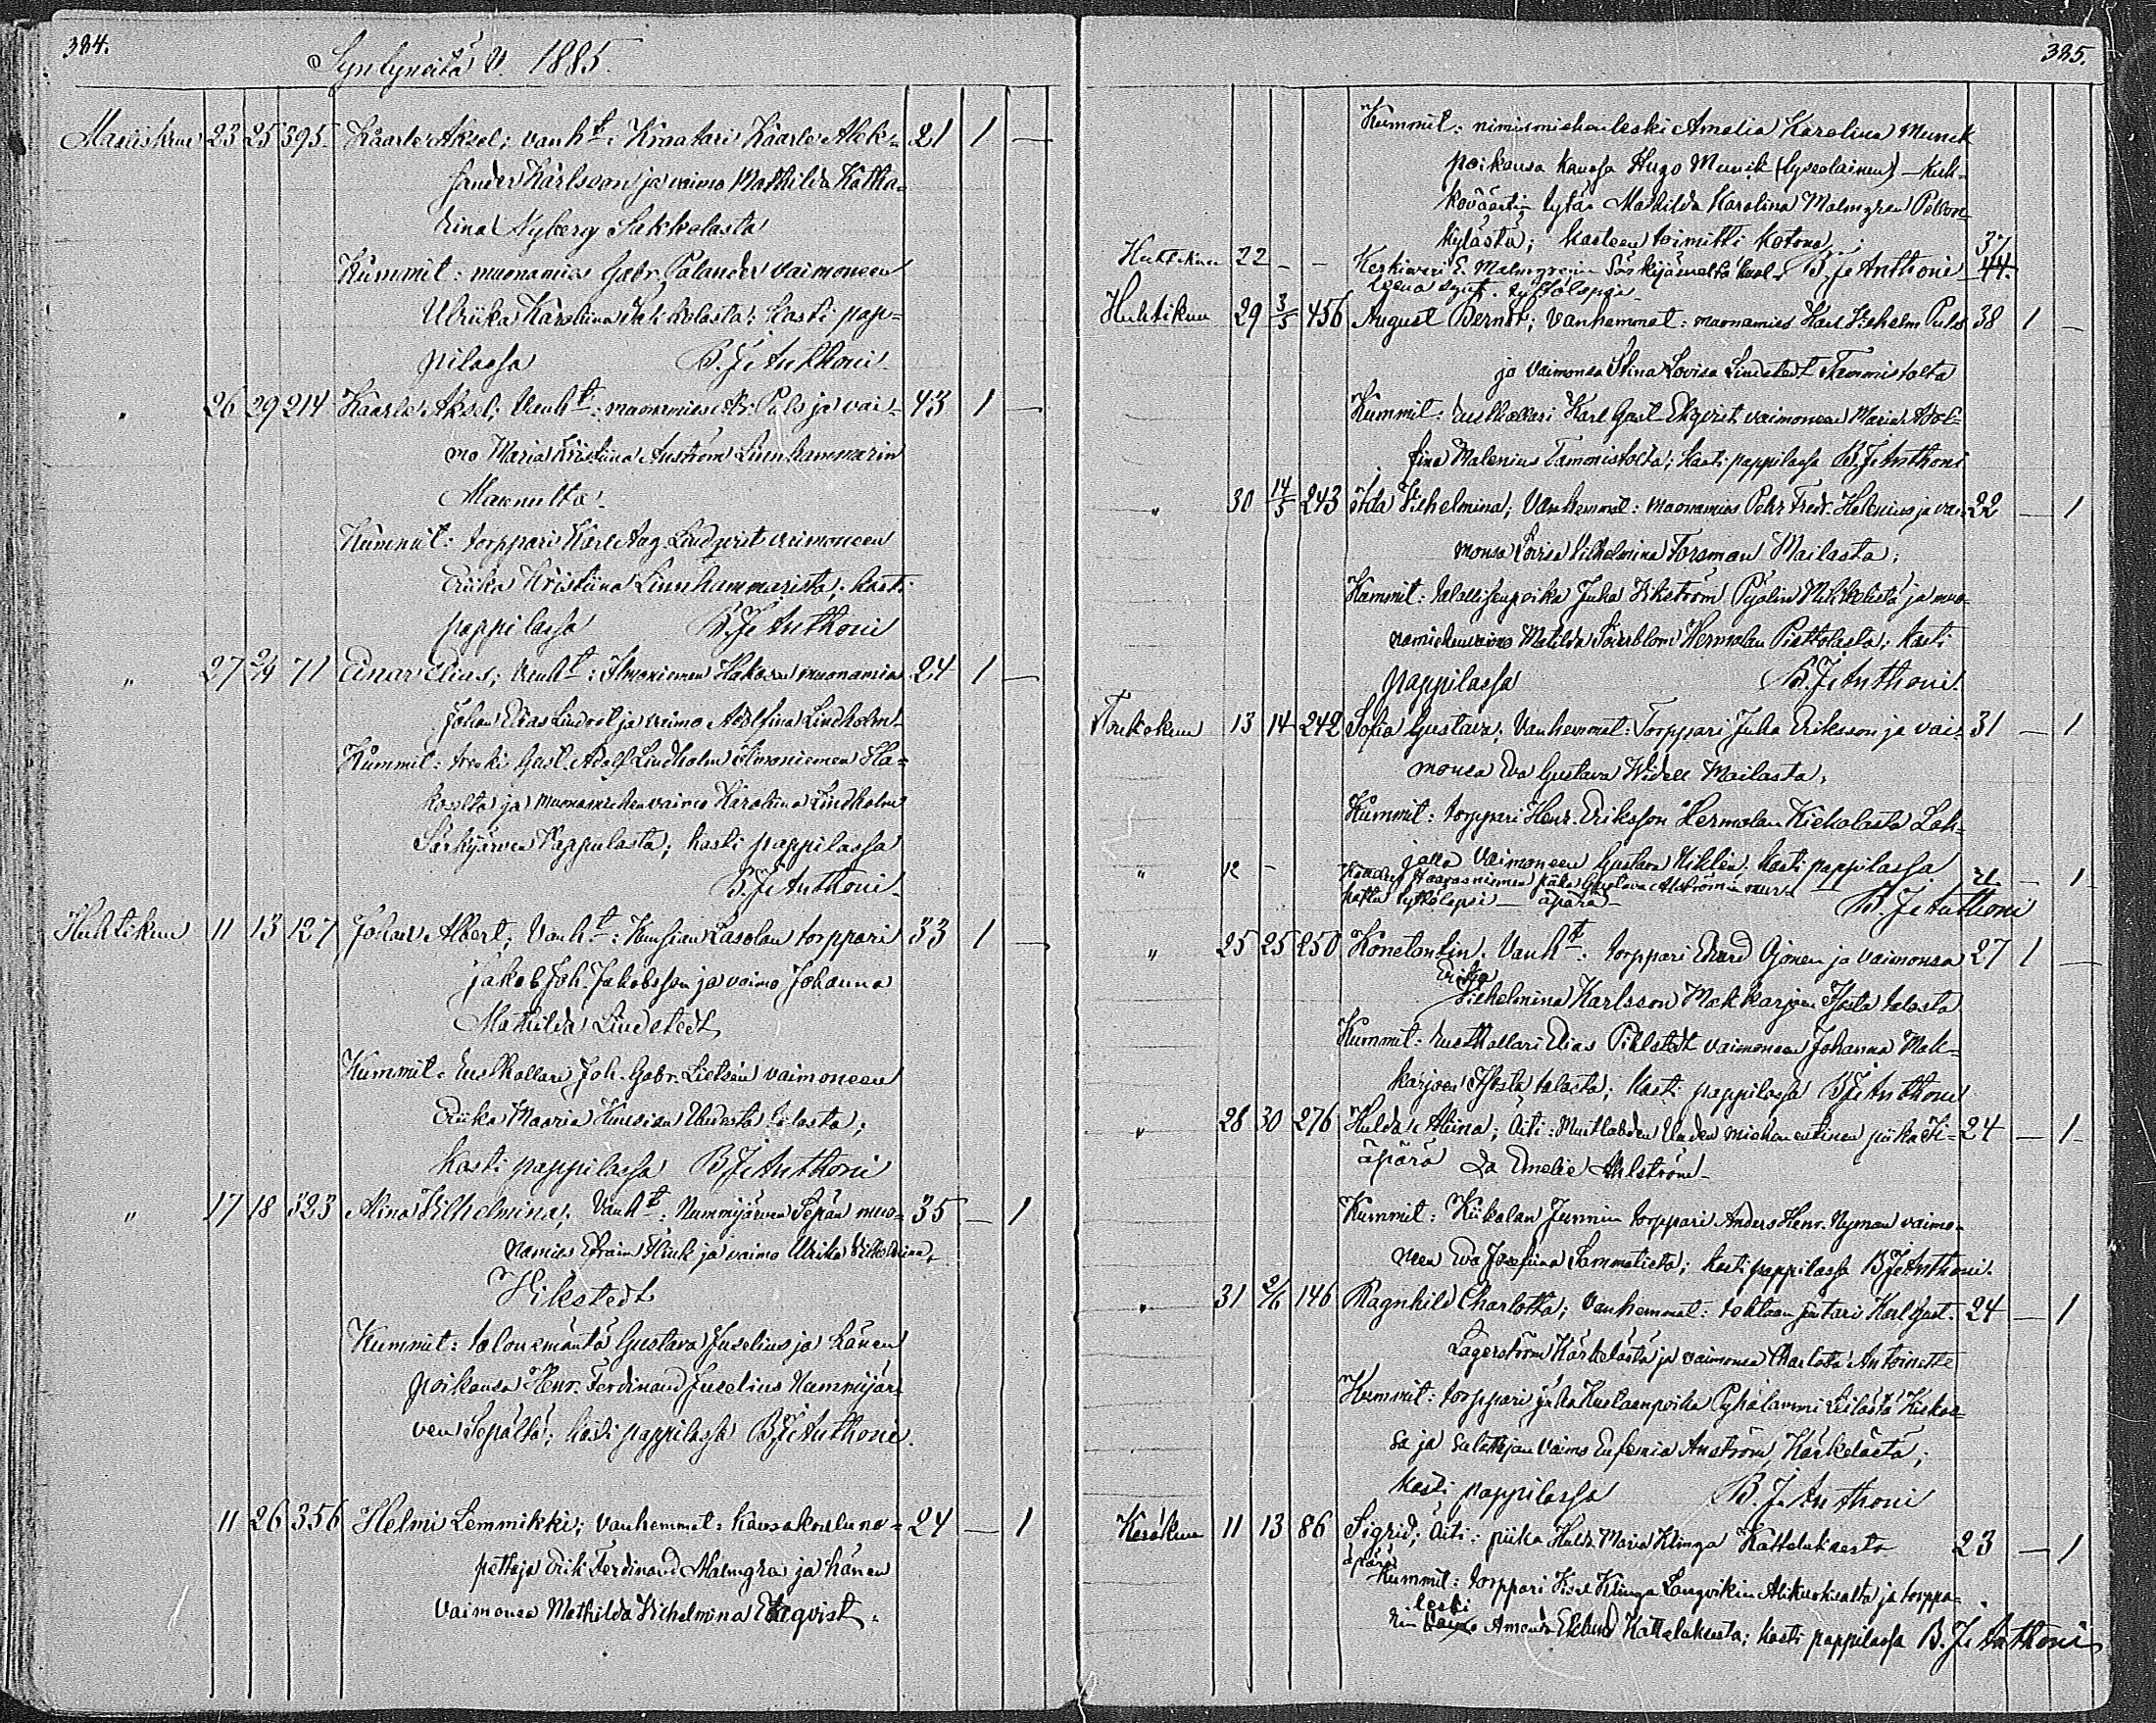 384.
Syntyneitä v. 1885.
Maaliskuu 23 25 395 Kaarle Aksel; vanht: Kraatari Kaarle Alek= 21 1 —
sander Karlsson ja vaimo Mathilda Katha=
rina Nyberg Sakkolasta
Kummit: muonamies Gabr. Palander vaimoneen
Ulriika Karoliina Sakkolasta; kasti pap=
pilassa B. J. Anthoni
" 26 29 214 Kaarle Aksel; Vanht: muonamies Puls ja vai= 43 1 —
mo Maria Kristiina Anström Linnhammarin
Kummit: torppari Karl Aug. Lindqvist vaimoneen
Eriika Kristiina Linnhammarista; kasti
pappilassa B. J. Anthoni
" 27 2/4 71 Einar Elias; Vanht: Ilmoniemen Hakosen muonamies 24 1 —
Johan Elias Lindrot ja vaimo Adolfina Lindholm
Kummit: Gust. Adolf Lindholm Ilmoniemen Ha=
koselta ja muonamiehen vaimo Karolina Lindholm
Särkijärven Pappulasta; kasti pappilassa
B. J. Anthoni
Huhtikuu 11 13 127 Johan Albert; Vanht: Kuusian Lasolan torppari 33 1 —
Jakob Joh. Jakobsson ja vaimo Johanna
Mathilda Lindstedt
Kummit: Rusthollari Joh. Gabr. Lietsén vaimoneen
Eriika Maaria Kuusian Uudesta talosta;
Kasti pappilassa B. J. Anthoni
" 17 18 323 Alina Wilhelmina; Vanht: Nummijärven Sepän muo= 35 — 1
namies Efraim Flink ja vaimo Ulriika Wilhelmina
Vikstedt
Kummit: talonemäntä Gustava Juselius ja hänen
poikansa Henr. Ferdinand Juselius Nummijär=
ven Sepältä; kasti pappilassa B. J. Anthoni.
11 26 356 Helmi Lemmikki; Vanhemmat: Kansakouluno= 24 — 1
pettaja Erik Ferdinand Malmgren ja hänen
Vaimonsa Mathilda Wilhelmina Ekqvist.
385.
Kummit: nimismiehenleski Amalia Karolina Munck
poikansa kanssa Hugo Munck (lyseolainen) — Kirk=
koväärtin tytär Mathilda Karolina Malmgren Pellon=
kylästä; kasteen toimitti kotona
Huhtikuu 22 — — Keskiveri E. Malmgrenin Särkijärveltä B. J. Anthoni 37 44.
synt. tyttölapsi
Huhtikuu 29 3/5 456 August Bernd; Vanhemmat: muonamies Karl Wilhelm Puls 38 1 —
ja vaimonsa Stina Lovisa Lindstedt Tammistolta
Kummit: rusthollari Karl Gust. Ekqvist vaimoneen Maria Adol=
fina Malenius Tammistolta; kasti pappilassa B. J. Anthoni
" 30 14/5 243 Ida Wilhelmina; Vanhemmat: muonamies Petr Fredr. Helenius ja vai= 22 — 1
monsa Lovisa Wilhelmina Forsman Mailasta;
Kummit: talollisenpoika Juha Wikström Pyölin Mikkolasta ja muo=
namiehenvaimo Matilda Söderblom Hermalan Pietolasta; kasti
pappilassa B. J. Anthoni.
Toukokuu 13 14 242 Sofia Gustava; Vanhemmat: Torppari Juha Eriksson ja vai= 31 — 1
monsa Eva Gustava Widell Mailasta;
Kummit: torppari Henr. Eriksson Hermalan Kiekolasta Loh=
jalla vaimoneen Gustava Wiklén; kasti pappilassa
" 12 — piika Gustava Ahlströmin 21 — 1
tyttölapsi — äpärä — B. J. Anthoni
" 25 25 250 Konstantin; Vanht: torppari Edvard Ojonen ja vaimonsa 27 1 —
Erika
Wilhelmina Karlsson Makkarjoen Ylosta talosta
Kummit: rusthollari Elias Pihlstedt vaimoneen Johanna Mak=
karjoen talosta; kasti pappilassa B. J. Anthoni
" 28 30 276 Hulda Alina; Äiti: piika 24 — 1
äpärä da Amelie Ahlström.
Kummit: Kiikalan Junnin torppari Anders Henr. Nyman vaimo=
neen Eva Josefiina Sammatista; kasti pappilassa B. J. Anthoni.
" 31 2/6 146 Ragnhild Charlotta; Vanhemmat: tehtaan Karl Gust. 24 — 1
Lagerström Kärkelästä ja vaimonsa Charlotta Antoinette
Kummit: torppari Juha Kustaanpoika Pyhälammi Kiskos=
sa ja vaimo Eufemia Anström, Kärkelästä;
kasti pappilassa B. J. Anthoni
Kesäkuu 11 13 86 Sigrid; Äiti: piika Hulda Maria Klinga Kattelukselta 23 — 1
äpärä
Kummit: torppari Klinga Langvikin Alikuokselta ja torppa=
leski
rin vaimo Amanda Eklund Kattelukselta; kasti pappilassa B. J. Anthoni